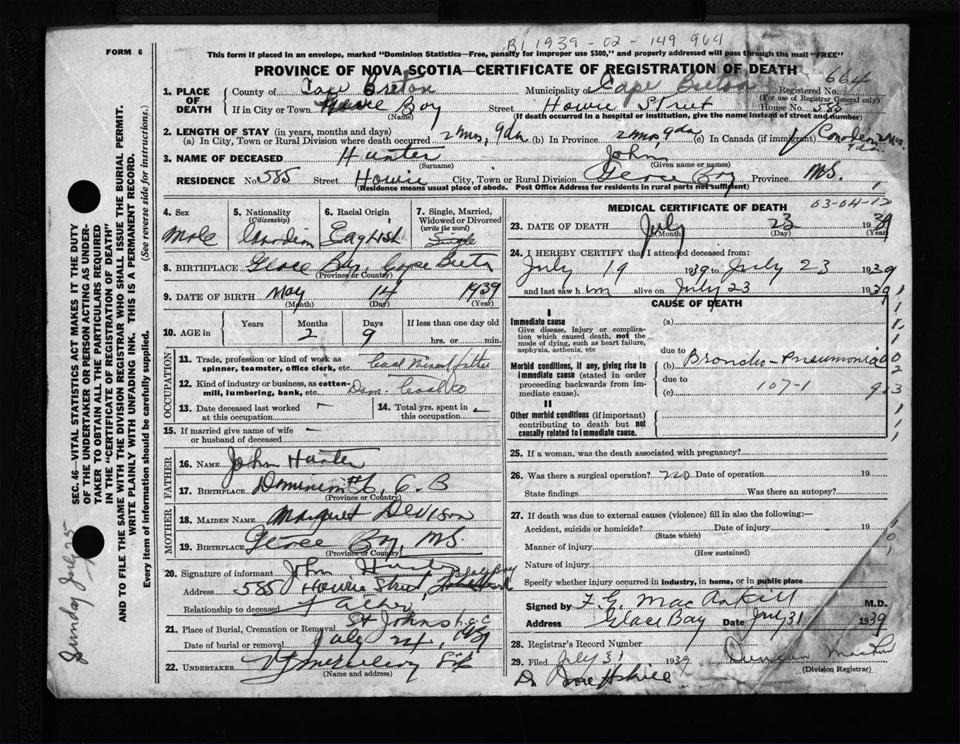 B 1939 - 02 - 149 964
FORM 6
This form if placed in an envelope, marked "Dominion Statistics—Free, penalty for improper use $300," and properly addressed will pass through the mail "FREE"
PROVINCE OF NOVA SCOTIA—CERTIFICATE OF REGISTRATION OF DEATH
664
1. PLACE OF DEATH
County of Cape Breton Municipality of Cape Breton Registered No.
(For use of Registrar General only)
If in City or Town Glace Bay Street Howie Street House No. 585
(Name) (If death occurred in a hospital or institution, give the name instead of street and number)
2. LENGTH OF STAY (in years, months and days)
(a) In City, Town or Rural Division where death occurred 2 mos, 9 da (b) In Province 2 mos, 9 da (c) In Canada (if immigrant)
3. NAME OF DECEASED Hunter John
(Surname) (Given name or names)
RESIDENCE No. 585 Street Howie City, Town or Rural Division Glace Bay Province N.S.
(Residence means usual place of abode. Post Office Address for residents in rural parts not sufficient)
4. Sex
Male
5. Nationality
(Citizenship)
Canadian
6. Racial Origin
English
7. Single, Married, Widowed or Divorced
(write the word)
Single
8. BIRTHPLACE Glace Bay, Cape Breton
(Province or Country)
9. DATE OF BIRTH May 14 1939
(Month) (Day) (Year)
10. AGE in Years Months Days If less than one day old
2 9 hrs. or min.
OCCUPATION
11. Trade, profession or kind of work as spinner, teamster, office clerk, etc. Coal Miner father
12. Kind of industry or business, as cotton-mill, lumbering, bank, etc. Dom. Coal Co
13. Date deceased last worked at this occupation —
14. Total yrs. spent in this occupation —
15. If married give name of wife or husband of deceased —
FATHER
16. NAME John Hunter
17. BIRTHPLACE Dominion #6, C. B
(Province or Country)
MOTHER
18. MAIDEN NAME Margaret Devison
19. BIRTHPLACE Glace Bay, N.S.
(Province or Country)
20. Signature of informant John Hunter
Address 585 Howie Street, Glace Bay
Relationship to deceased Father
21. Place of Burial, Cremation or Removal St Johns
Date of burial or removal July 24, 1939
22. UNDERTAKER
(Name and address)
MEDICAL CERTIFICATE OF DEATH
03-04-12
23. DATE OF DEATH July 23 1939
(Month) (Day) (Year)
24. I HEREBY CERTIFY that I attended deceased from:
July 19 1939 to July 23 1939
and last saw him alive on July 23 1939
CAUSE OF DEATH
I
Immediate cause (a)
Give disease, injury or complication which caused death, not the mode of dying, such as heart failure, asphyxia, asthenia, etc
due to
Morbid conditions, if any, giving rise to immediate cause (stated in order proceeding backwards from immediate cause)
(b) Broncho-Pneumonia
due to
(c) 107-1
II
Other morbid conditions (if important) contributing to death but not causally related to immediate cause.
25. If a woman, was the death associated with pregnancy?
26. Was there a surgical operation? no Date of operation 19
State findings Was there an autopsy?
27. If death was due to external causes (violence) fill in also the following:—
Accident, suicide or homicide? Date of injury 19
(State which)
Manner of injury
(How sustained)
Nature of injury
Specify whether injury occurred in industry, in home, or in public place
Signed by F. G. MacAskill M.D.
Address Glace Bay Date July 31 1939
28. Registrar's Record Number
29. Filed July 31 1939 Duncan
(Division Registrar)
SEC. 46—VITAL STATISTICS ACT MAKES IT THE DUTY OF THE UNDERTAKER OR PERSON ACTING AS UNDERTAKER TO OBTAIN ALL THE PARTICULARS REQUIRED IN THE "CERTIFICATE OF REGISTRATION OF DEATH"
AND TO FILE THE SAME WITH THE DIVISION REGISTRAR WHO SHALL ISSUE THE BURIAL PERMIT.
WRITE PLAINLY WITH UNFADING INK. THIS IS A PERMANENT RECORD.
Every item of information should be carefully supplied. (See reverse side for instructions.)
Sunday July 25